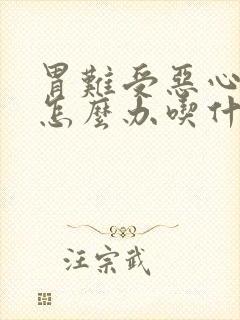 胃難受惡心
怎麼办喫什
汪宗武